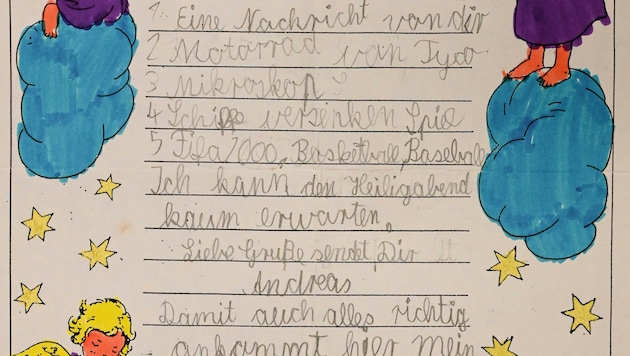 1. Eine Nachricht von dir
2 Motorrad von Tyco
3 Mikroskop
4 Schiffe versenken Spiel
5 Fifa 2000, Basketball, Baseball
Ich kann den Heiligabend
kaum erwarten.
Liebe Grüße sendet Dir
Andreas
Damit auch alles richtig
ankommt hier mein